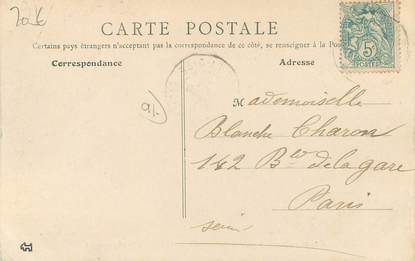 20 €
CARTE POSTALE
Certains pays étrangers n'acceptant pas la correspondance de ce côté, se renseigner à la Pos
Correspondance
Adresse
5c
91.
Mademoiselle
Blanche Charon
142 Bd de la gare
Paris
Seine